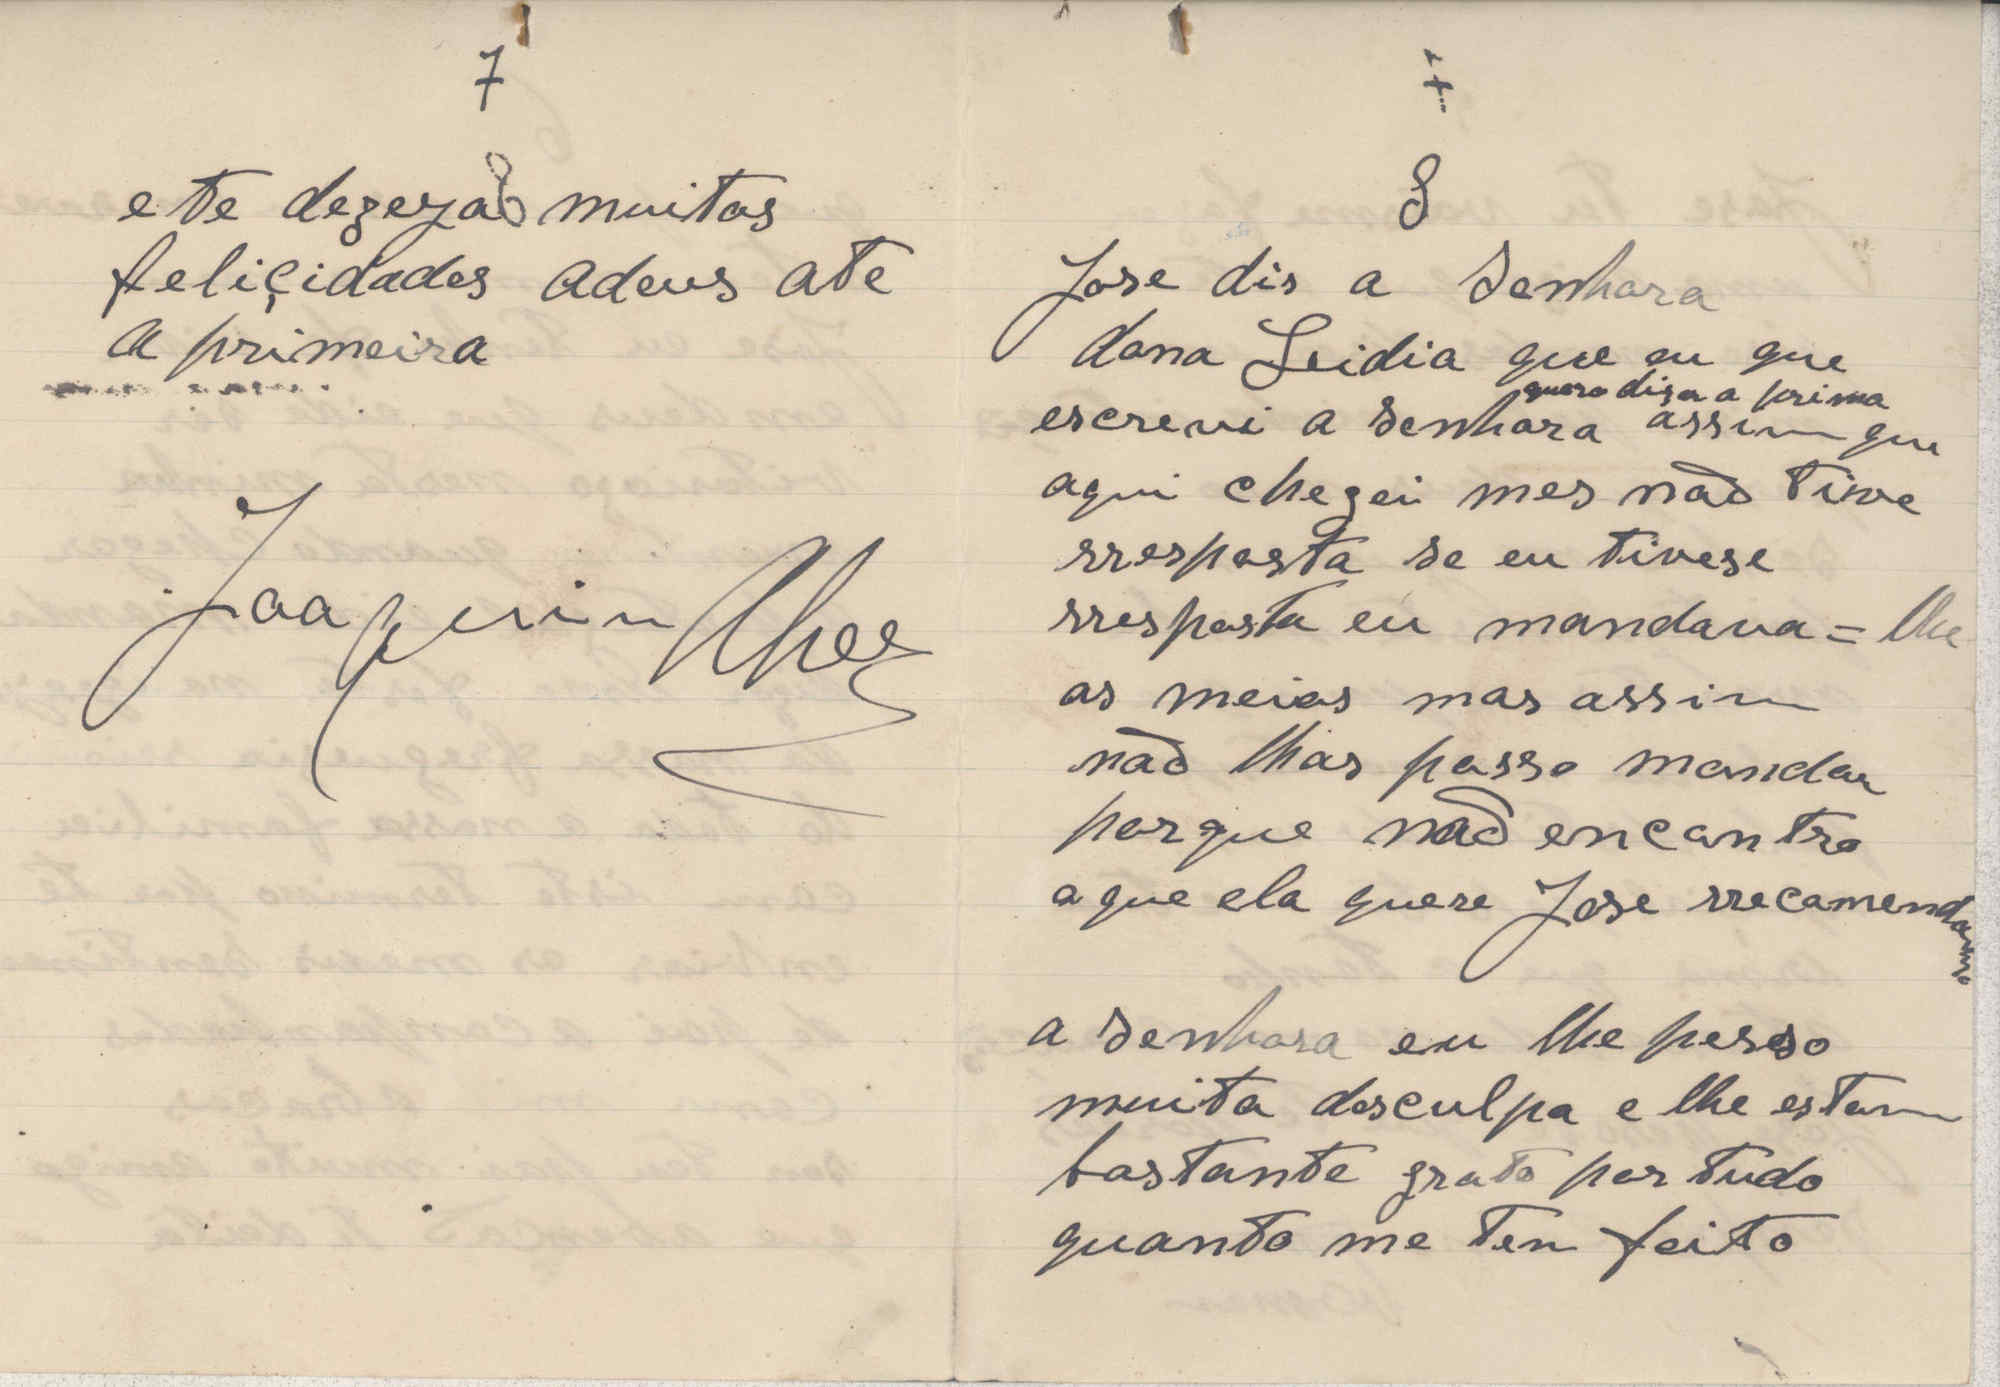 7
e te dezeyaõ muitas
feliçidades adeus ate
a primeira
Joaquim Alves
8
Jose dis a Senhora
dona Leidia que eu que
quero diser a prima
escrevi a Senhora assim que
aqui chegei mes naõ tive
rresposta se eu tivese
rresposta eu mandava = lhe
as meias mas assim
naõ lhas posso mandar
porque naõ encontro
a que ela quere Jose rrecomenda
a Senhora eu lhe pesso
muita desculpa e lhe estam
bastante grato por tudo
quanto me tem feito